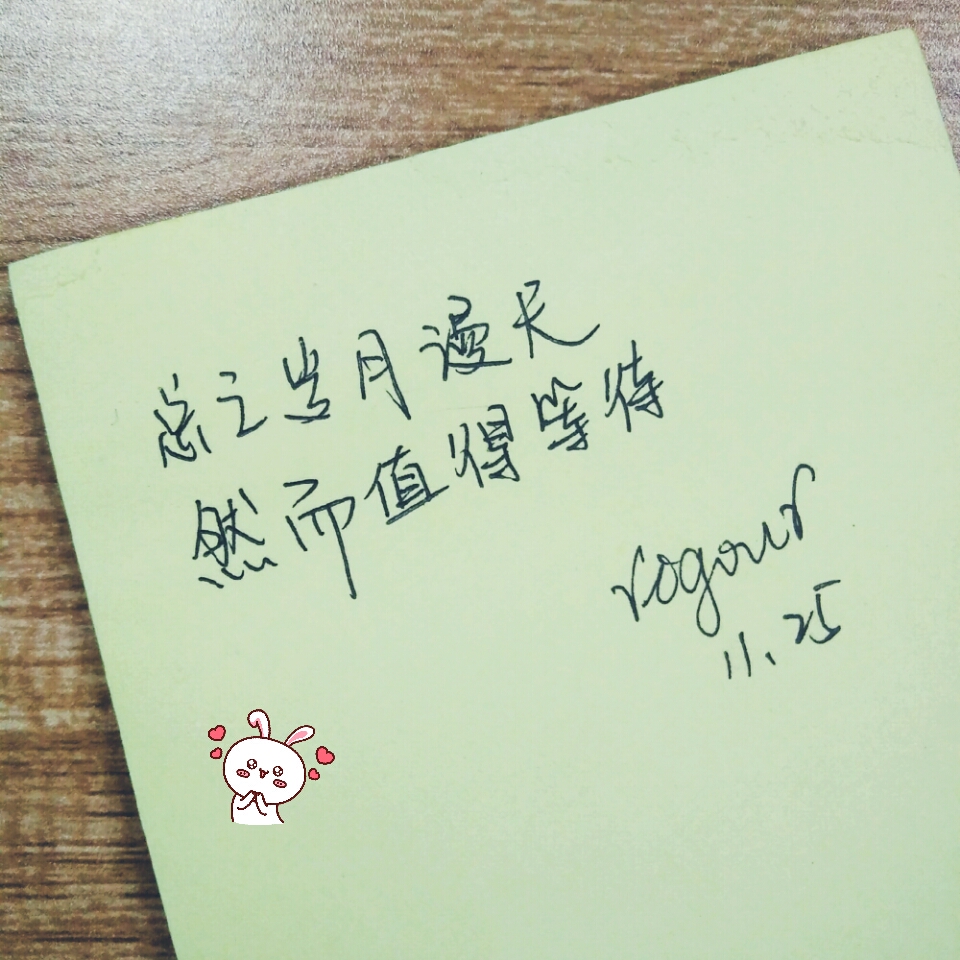 总之岁月漫长
然而值得等待
rogour
11.25